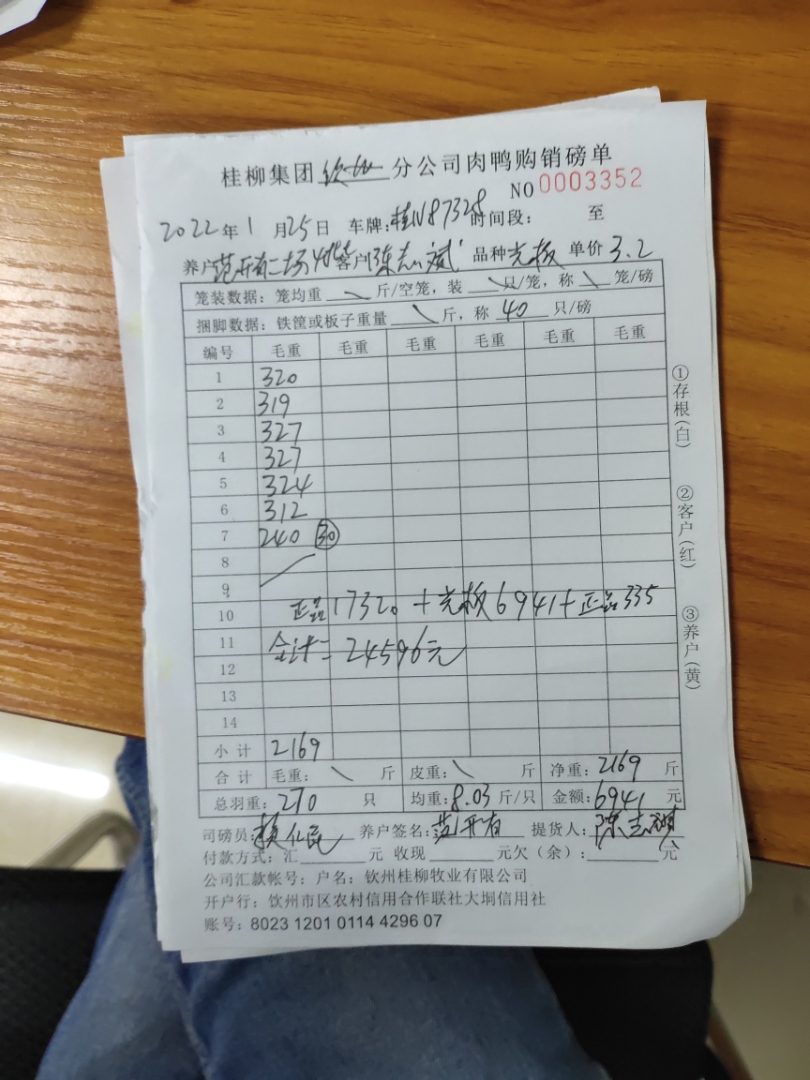 桂柳集团钦州分公司肉鸭购销磅单
NO 0003352
2022年1月25日 车牌:桂N87328 时间段: 至
养户范开有二场 客户陈志斌 品种光板 单价3.2
笼装数据:笼均重 \ 斤/空笼,装 \ 只/笼,称 \ 笼/磅
捆脚数据:铁筐或板子重量 \ 斤,称 40 只/磅
编号 毛重 毛重 毛重 毛重 毛重 毛重
1 320
2 319
3 327
4 327
5 324
6 312
7 240 30
8
9
10 正品17320+光板6941+正品335
11 合计=24596元
12
13
14
小计 2169
合计 毛重: \ 斤 皮重: \ 斤 净重:2169 斤
总羽重:270 只 均重:8.03 斤/只 金额:6941 元
司磅员:赖仁民 养户签名:范开有 提货人:陈志斌
付款方式:汇 元 收现 元欠(余): 元
公司汇款帐号:户名:钦州桂柳牧业有限公司
开户行:钦州市区农村信用合作联社大垌信用社
账号:8023 1201 0114 4296 07
①存根(白)
②客户(红)
③养户(黄)